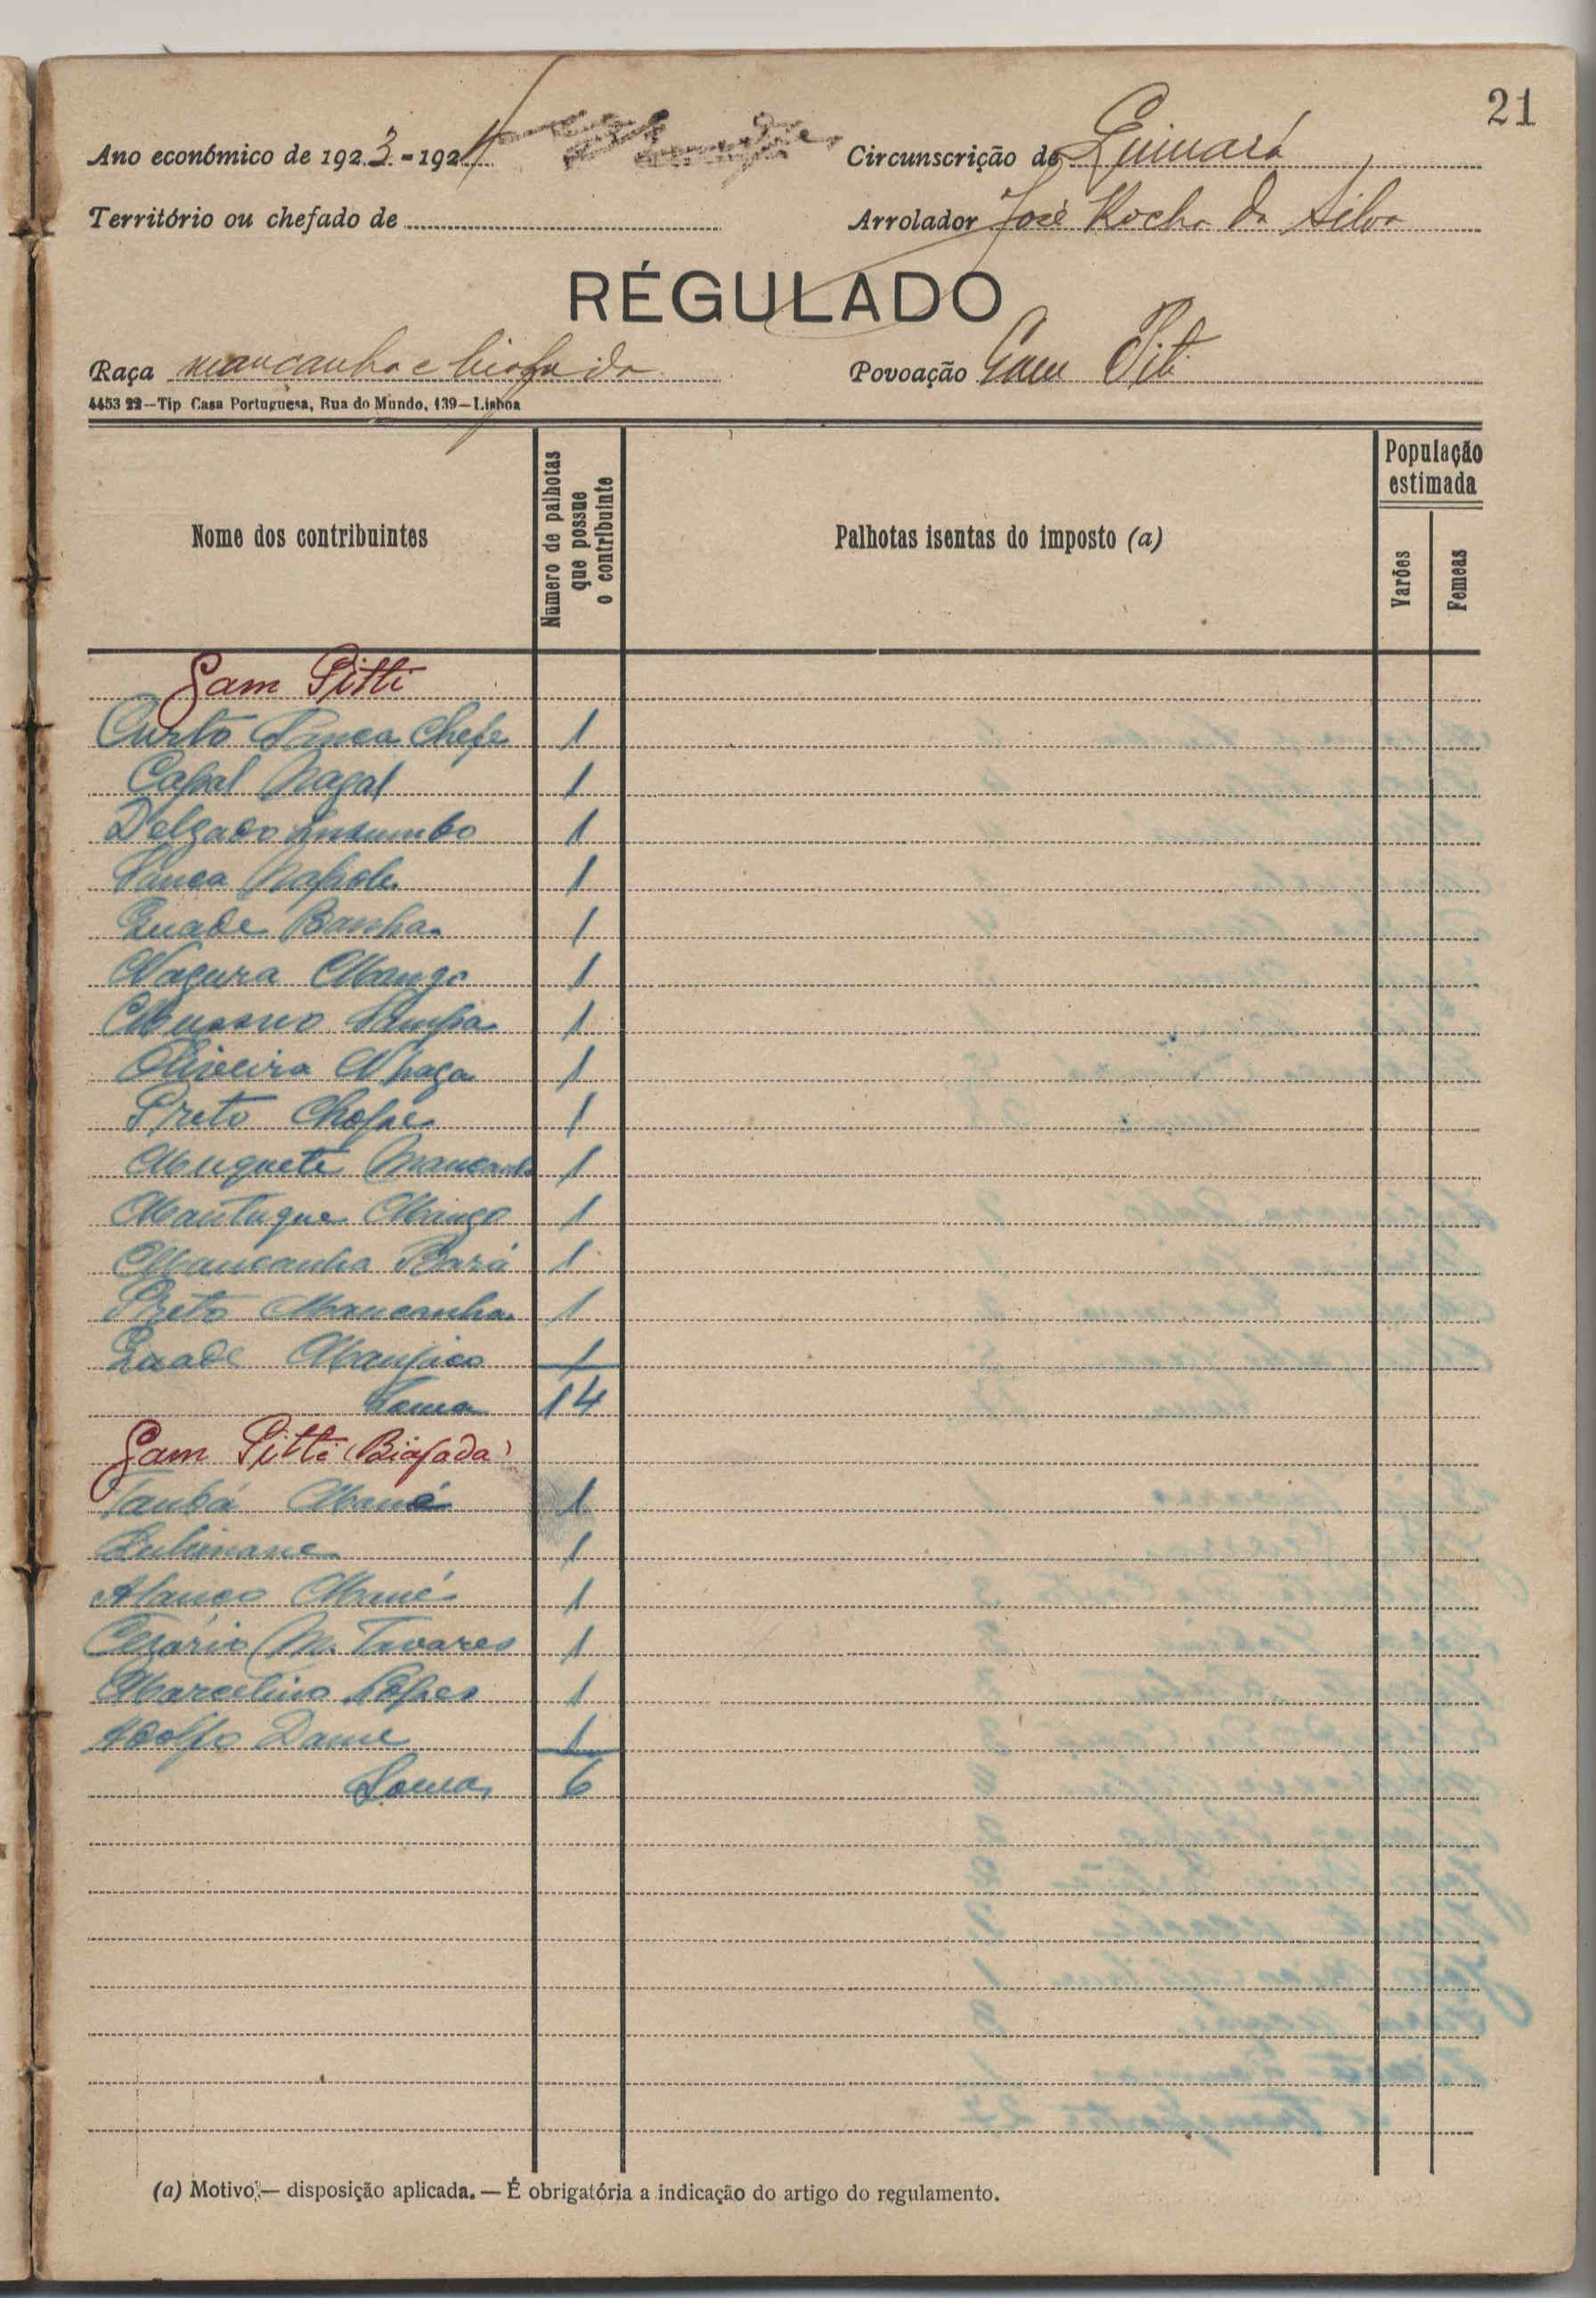 21
Ano económico de 1923-1924
Circunscrição de
Território ou chefado de
Arrolador José Rocha da Silva
RÉGULADO
Raça mancanha e biafada
Povoação Gam Piti
4453 22—Tip Casa Portuguesa, Rua do Mundo, 139—Lisboa
Nome dos contribuintes
Número de palhotas que possue o contribuinte
Palhotas isentas do imposto (a)
População estimada
Varões
Femeas
Gam Pitti
Curto Sanca Chefe 1
Capal Nagal 1
Delgado Insumbo 1
Sanca Napole 1
Quade Banha 1
Nagura Mango 1
1
Oliveira Nhaga 1
Preto Chope 1
Muquete Mancanha 1
Mantuque Mango 1
Mancanha Bará 1
Preto Mancanha 1
Quade Manjaco 1
Soma 14
Gam Pitti (Biafada)
Mané 1
Quebimane 1
Mané 1
Cezário M. Tavares 1
Marcelino Lopes 1
Adolfo Dame 1
Soma 6
(a) Motivo;— disposição aplicada. — É obrigatória a indicação do artigo do regulamento.